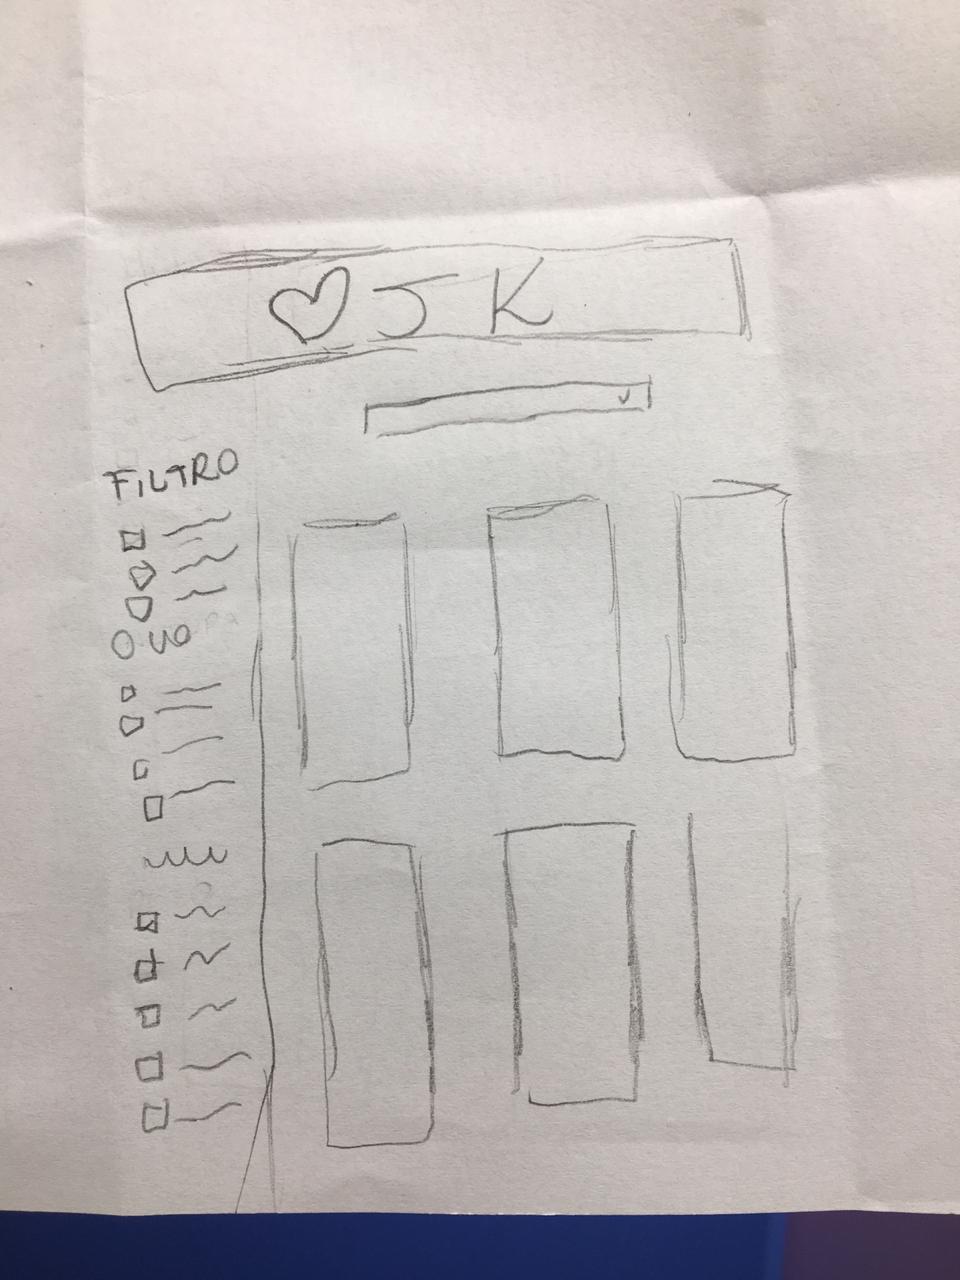 ♡ JK
FILTRO